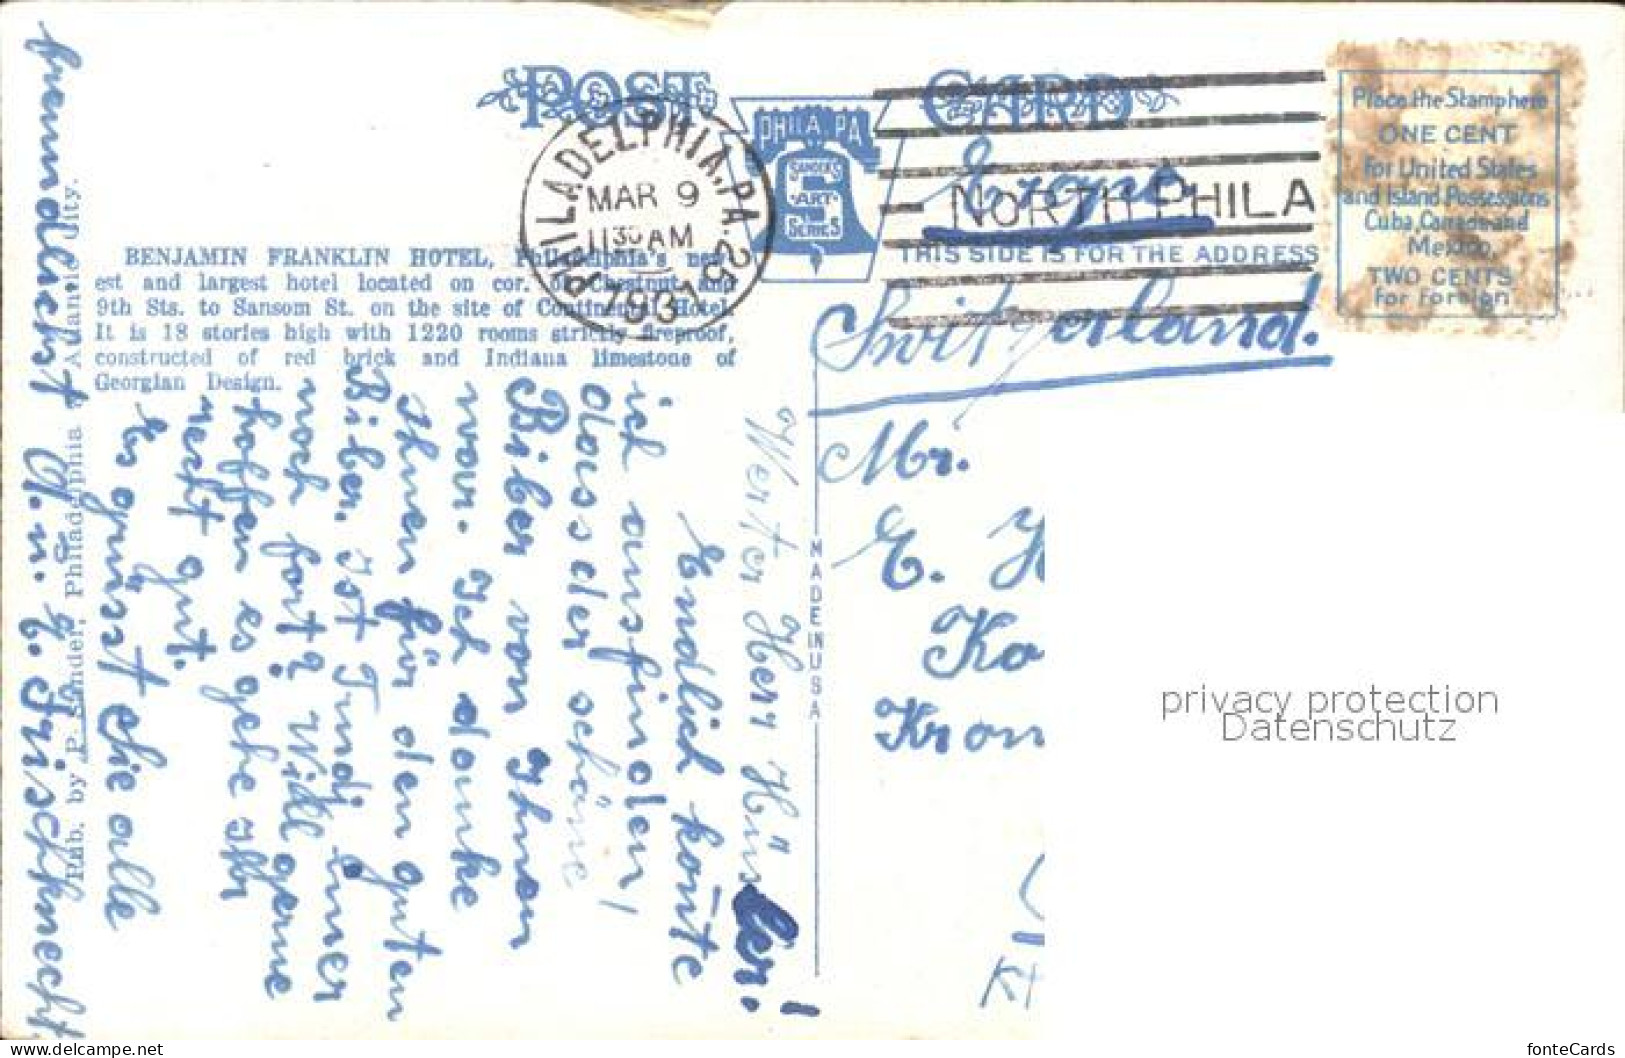 POST CARD
PHILA, PA
SANDER'S
ART
SERIES
PHILADELPHIA, PA. 25
MAR 9
11 30 AM
1931
NORTH PHILA
THIS SIDE IS FOR THE ADDRESS
Place the Stamp here
ONE CENT
for United States
and Island Possessions
Cuba, Canada and
Mexico,
TWO CENTS
for Foreign
BENJAMIN FRANKLIN HOTEL, Philadelphia's new-
est and largest hotel located on cor. of Chestnut and
9th Sts. to Sansom St. on the site of Continental Hotel.
It is 18 stories high with 1220 rooms strictly fireproof,
constructed of red brick and Indiana limestone of
Georgian Design.
Werter Herr Hünsler!
Endlich konte
ich ausfinden
dass der schöne
Biber von Ihnen
war. Ich danke
Ihnen für den guten
Biber. Ist Trudj imer
noch fort? Will gerne
hoffen es gehe Ihr
recht gut.
Es grüsst Sie alle
freundlichst
Frischknecht
Pub. by P. Sander, Philadelphia & Atlantic City.
MADE IN U S A
Europe
Switzerland.
Mr.
E. H
Ko
Kron
privacy protection
Datenschutz
https://www.ansichtskarten-center.de
fonteCards